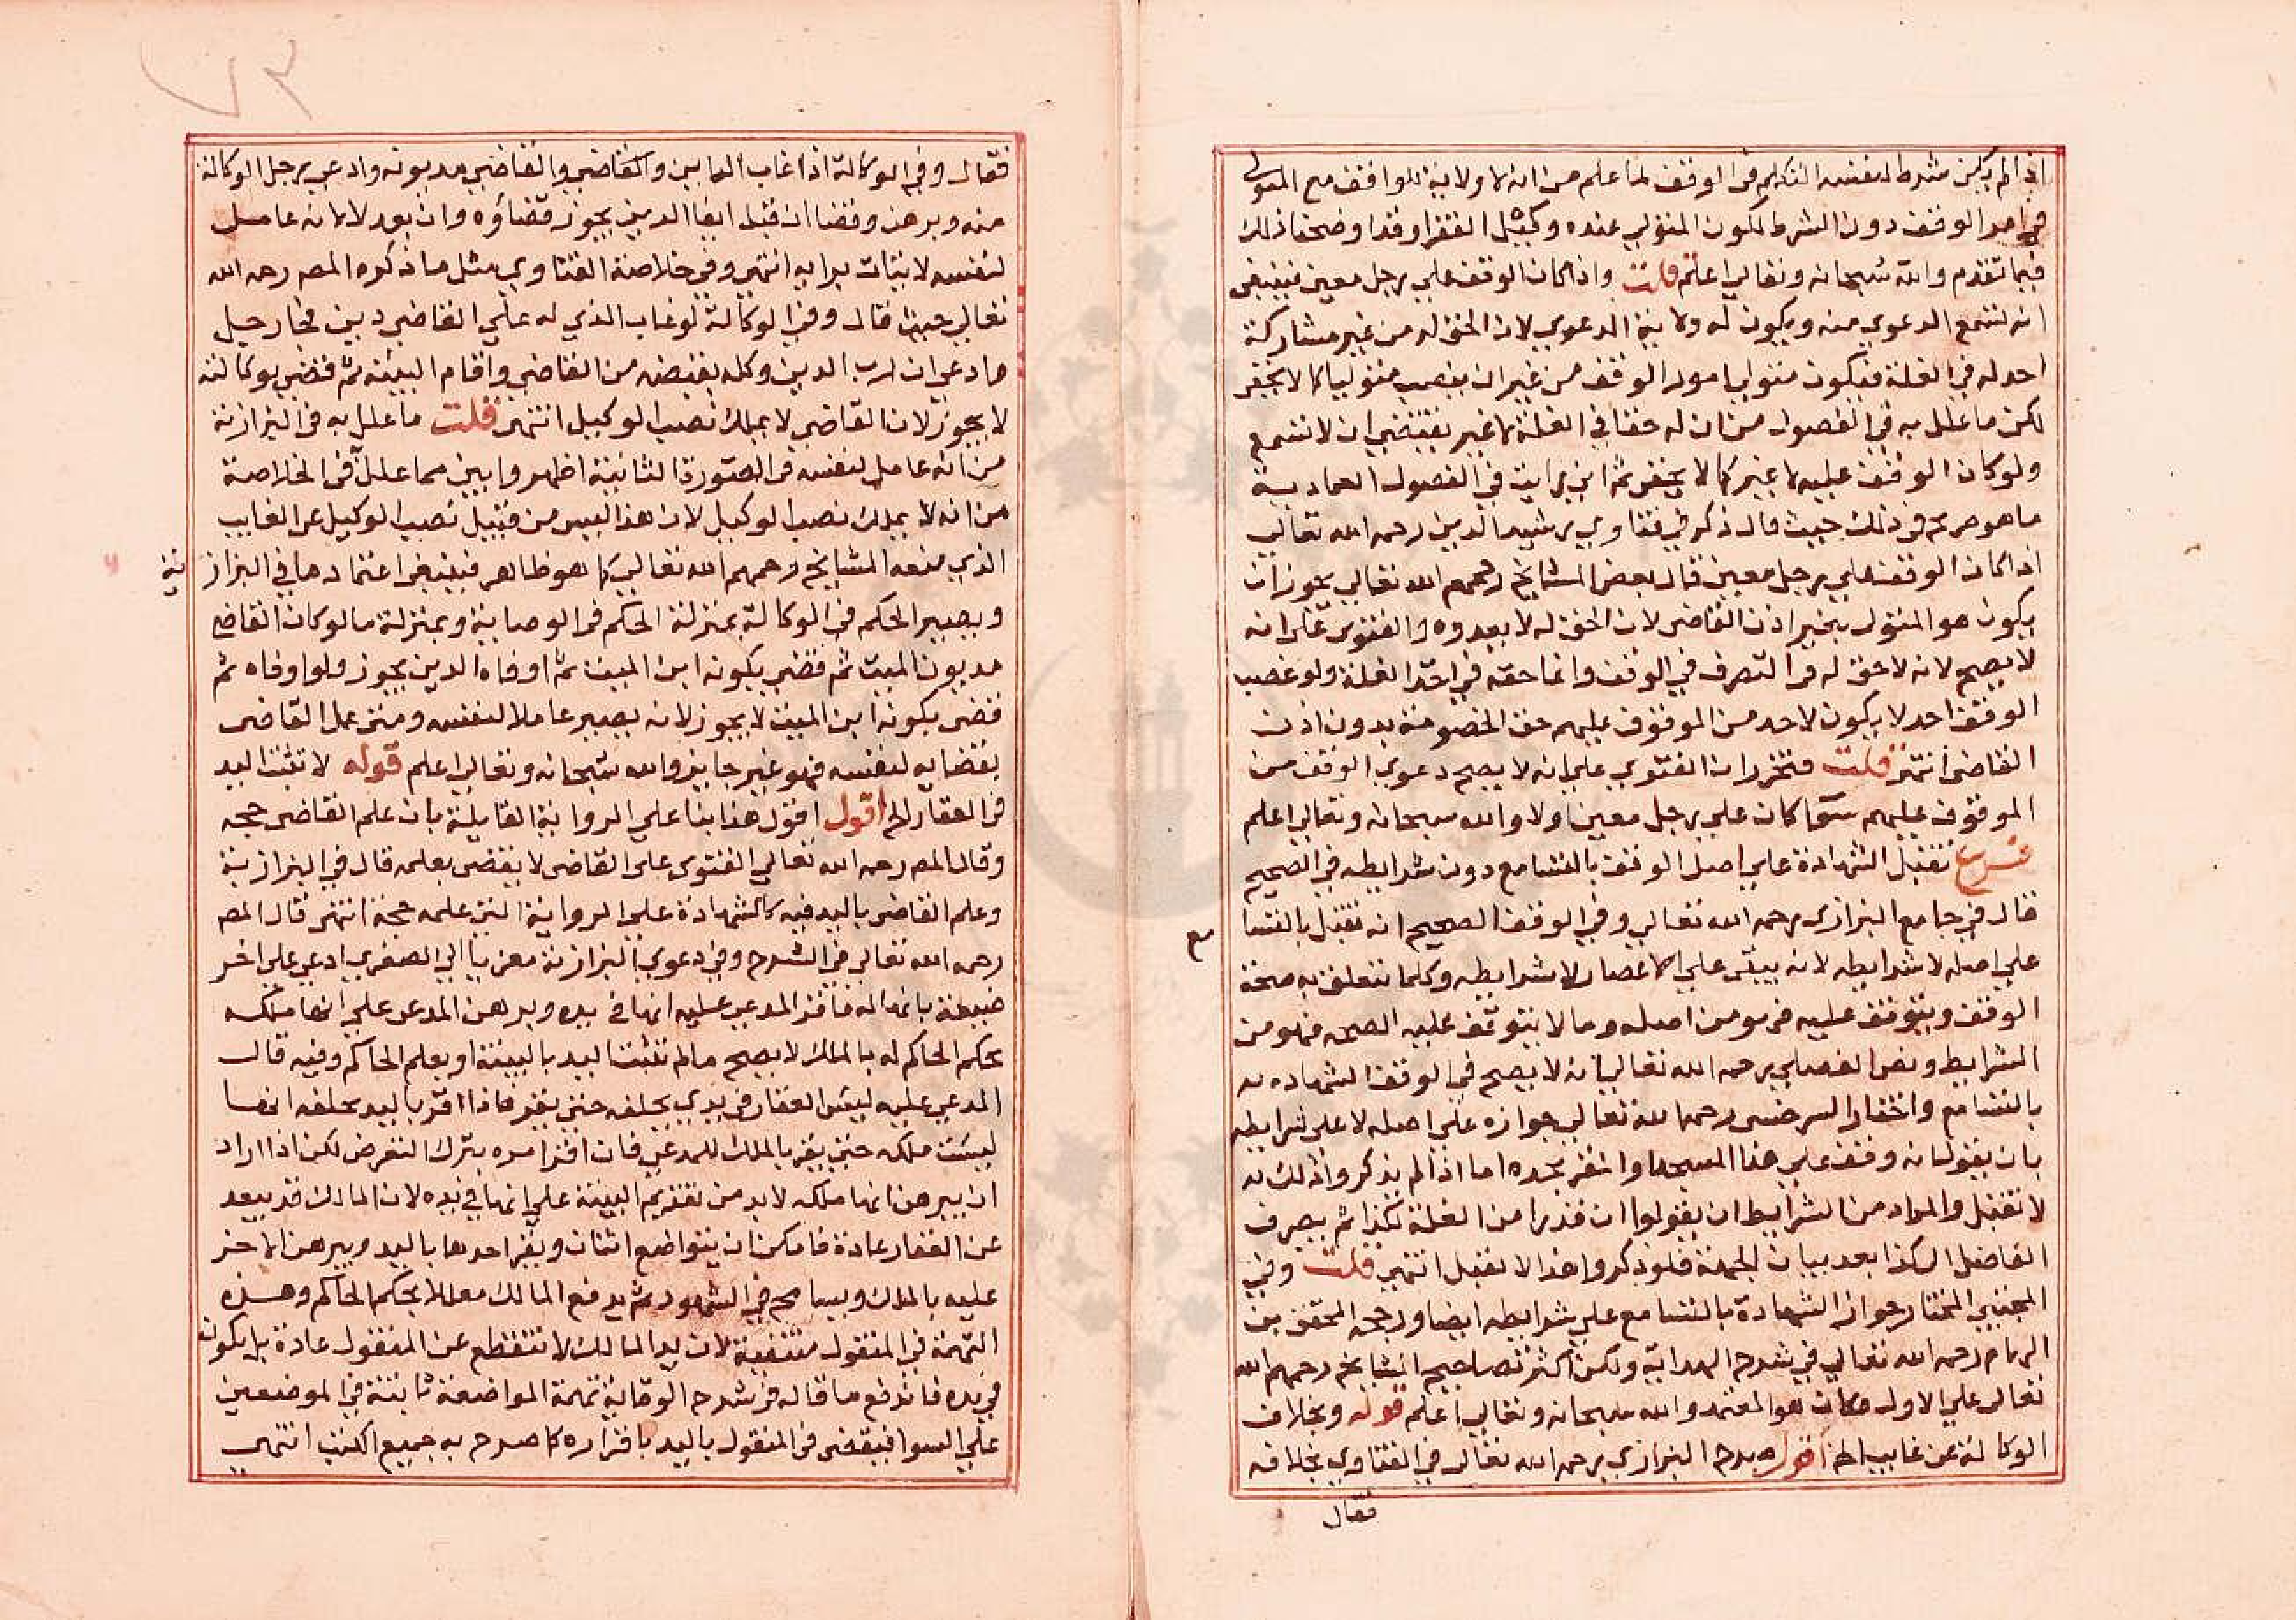 اذا لم يكن شرط لنفسه التكلم في الوقف لما علم من ان لا ولاية للواقف مع المتولي
في امر الوقف دون الشرط لكون المتولي عنده وكيل الفقرا وقد اوضحنا ذلك
فيما تقدم والله سبحانه وتعالي اعلم قلت واذا كان الوقف علي رجل معين فينبغي
ان تسمع الدعوي منه ويكون له ولاية الدعوي لان الحق له من غير مشاركة
احد له في الغلة فيكون متوليا امور الوقف من غير ان ينصب متوليا كما لا يخفي
لكن ما علل به في الفصول من ان له حقا في الغلة لا غير يقتضي ان لا تسمع
ولو كان الوقف عليه لا غير كما لا يخفي ثم اني رايت في الفصول العمادية
ما هو صريح في ذلك حيث قال ذكر في فتاوي رشيد الدين رحمه الله تعالي
اذا كان الوقف علي رجل معين قال بعض المشايخ رحمهم الله تعالي يجوز ان
يكون هو المتولي بغير اذن القاضي لان الحق له لا يعدوه والفتوي علي انه
لا يصح لانه لا حق له في التصرف في الوقف وانما حقه في اخذ الغلة ولو غصب
الوقف احد لا يكون لاحد من الموقوف عليهم حق الخصومة بدون اذن
القاضي انتهي قلت فتحرر ان الفتوي علي انه لا يصح دعوي الوقف من
الموقوف عليهم سوا كان علي رجل معين او لا والله سبحانه وتعالي اعلم
فرع تقبل الشهادة علي اصل الوقف بالتسامع دون شرايطه في الصحيح
قال في جامع البزازي رحمه الله تعالي وفي الوقف الصحيح انه تقبل بالتسا مع
علي اصله لا شرايطه لانه يبقي علي الاعصار لا شرايطه وكلما تتعلق به صحة
الوقف ويتوقف عليه فهو من اصله وما لا يتوقف عليه الصحه فهو من
الشرايط ونص الفضلي رحمه الله تعالي انه لا يصح في الوقف الشهاده به
بالتسامع واختار السرخسي رحمه الله تعالي جوازه علي اصله لا علي شرايطه
بان يقولوا انه وقف علي هذا المسجد او المقبره اما اذا لم يذكروا ذلك لا
لا تقبل والمراد من الشرايط ان يقولوا ان قدرا من الغلة لكذا ثم يصرف
الفاضل الي كذا بعد بيان الجهة فلو ذكروا هذا لا تقبل انتهي قلت وفي
المجتبي المختار جواز الشهادة بالتسامع علي شرايطه ايضا ورجحه المحقق بن
الهمام رحمه الله تعالي في شرح الهداية ولكن اكثر تصاحيح المشايخ رحمهم الله
تعالي علي الاول فكان هو المعتمد والله سبحانه وتعالي اعلم قوله وبخلاف
الوكالة عن غايب الخ اقول صرح البزازي رحمه الله تعالي في الفتاوي بخلافه
فقال
٧٣
فقال وفي الوكالة اذا غاب الداين والقاضي مديونه وادعي رجل الوكالة
منه وبرهن وقضا ان قبل ايفا الدين يجوز قضاؤه وان بعد لا لانه عامل
لنفسه لا بثبات برايه انتهي وفي خلاصة الفتاوي مثل ما ذكره المص رحمه الله
تعالي حيث قال وفي الوكالة لو غاب الذي له علي القاضي دين فجا رجل
وادعي ان رب الدين وكله بقبضه من القاضي واقام البينه ثم قضي بوكالته
لا يجوز لان القاضي لا يملك نصب الوكيل انتهي قلت ما علل به في البزازية
من انه عامل لنفسه في الصورة الثانية اظهر وابين مما علل في الخلاصة
من انه لا يملك نصب الوكيل لان هذا ليس من قبيل نصب الوكيل عن الغايب
الذي منعه المشايخ رحمهم الله تعالي كما هو ظاهر فينبغي اعتماد ما في البزاز ية
ويصير الحكم في الوكالة بمنزلة الحكم في الوصاية وبمنزلة ما لو كان القاضي
مديون الميت ثم قضي بكونه ابن الميت ثم اوفاه الدين يجوز ولو اوفاه ثم
قضي بكونه ابن الميت لا يجوز لانه يصير عاملا لنفسه ومتي عمل القاضي
بقضايه لنفسه فهو غير جايز والله سبحانه وتعالي اعلم قوله لا تثبت اليد
في العقار الخ اقول اقول هذا بنا علي الرواية القايلة بان علم القاضي حجه
وقال المص رحمه الله تعالي الفتوي علي القاضي لا يقضي بعلمه قال في البزازية
وعلم القاضي باليد فيه كالشهادة علي الرواية التي علمه حجة انتهي قال المص
رحمه الله تعالي في الشرح وفي دعوي البزازية معزيا الي الصغري ادعي علي اخر
ضيعة بانها له فاقر المدعي عليه انها في يده وبرهن المدعي علي انها ملكه
بحكم الحاكم له بالملك لا يصح ما لم تثبت اليد بالبينة او بعلم الحاكم وفيه قال
المدعي عليه ليس العقار في يدي يحلفه حتي يقر فاذا اقر باليد يحلفه انها
ليست ملكه حتي يقر بالملك للمدعي فان اقر امره بترك التعرض لكن اذا اراد
ان يبرهن انها ملكه لا بد من تقديم البينة علي انها في يده لان المالك قد يبعد
عن العقار عادة فامكن ان يتواضع اثنان ويقر احدهما باليد ويبرهن الاخر
عليه بالملك ويسامح في الشهود ثم يدفع المالك معللا بحكم الحاكم وهذه
التهمة في المنقول منتفية لان يد المالك لا تنقطع عن المنقول عادة بل يكون
في يده فاندفع ما قاله في شرح الوقاية تهمة المواضعة ثابتة في الموضعين
علي السوا فيقضي في المنقول باليد باقراره كما صرح به جميع الكتب انتهي